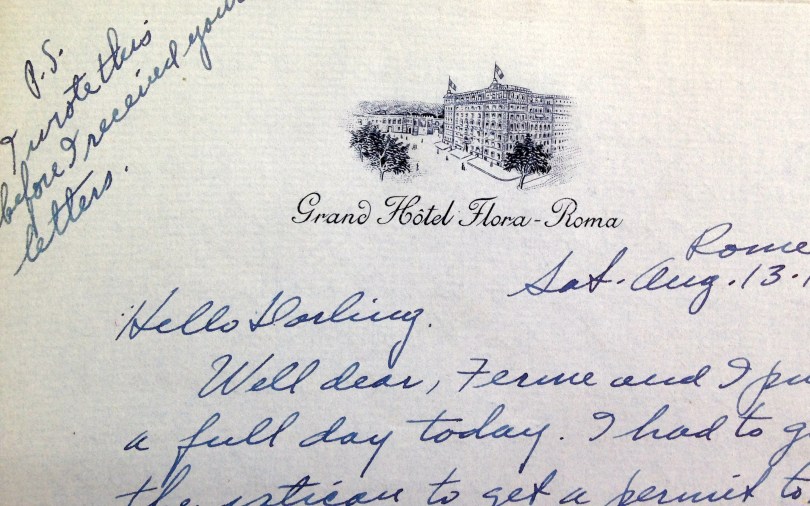 P.S.
I wrote this
before I received your
letters.
Grand Hôtel Flora - Roma
Rome
Sat. Aug. 13.
Hello Darling.
Well dear, Ferme and I pu
a full day today. I had to g
the vatican to get a permit to